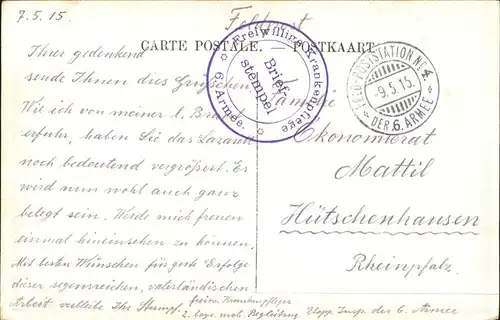 7.5.15.
Feldpost
CARTE POSTALE. — POSTKAART.
Freiwillige Krankenpflege
6. Armee.
Brief-
stempel
FELD-POSTSTATION No 4.
-9.5.15.
DER 6. ARMEE
Ihrer gedenkend
sende Ihnen dies Grüßchen.
Wie ich von meiner l. Braut
erfuhr, haben Sie das Lazarett
noch bedeutend vergrößert. Es
wird nun wohl auch ganz
belegt sein. Werde mich freuen
einmal hineinsehen zu können.
Mit besten Wünschen für gute Erfolge
dieser segensreichen, vaterländischen
Arbeit verbleibe Ihr Stumpf.
freiw. Krankenpfleger
Etapp. Insp. der 6. Armee
Familie
Ökonomierat
Mattil
Hütschenhausen
Rheinpfalz.